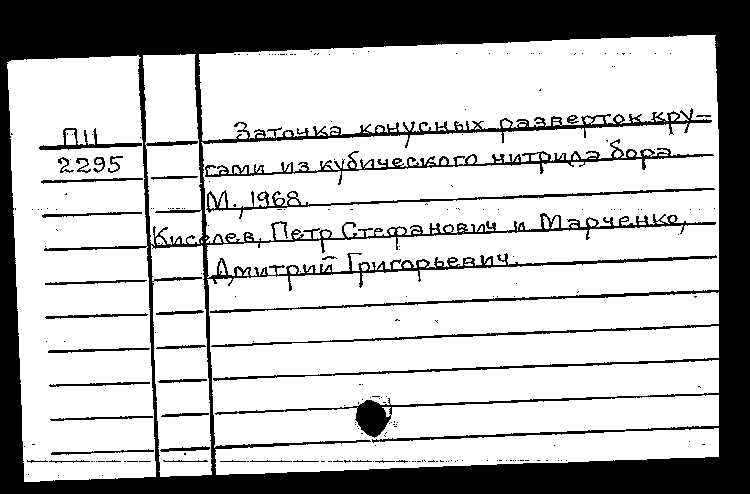 П11
2295
Заточка конусных разверток кру=
гами из кубического нитрида бора.
М., 1968.
Киселев, Петр Стефанович и Марченко,
Дмитрий Григорьевич.